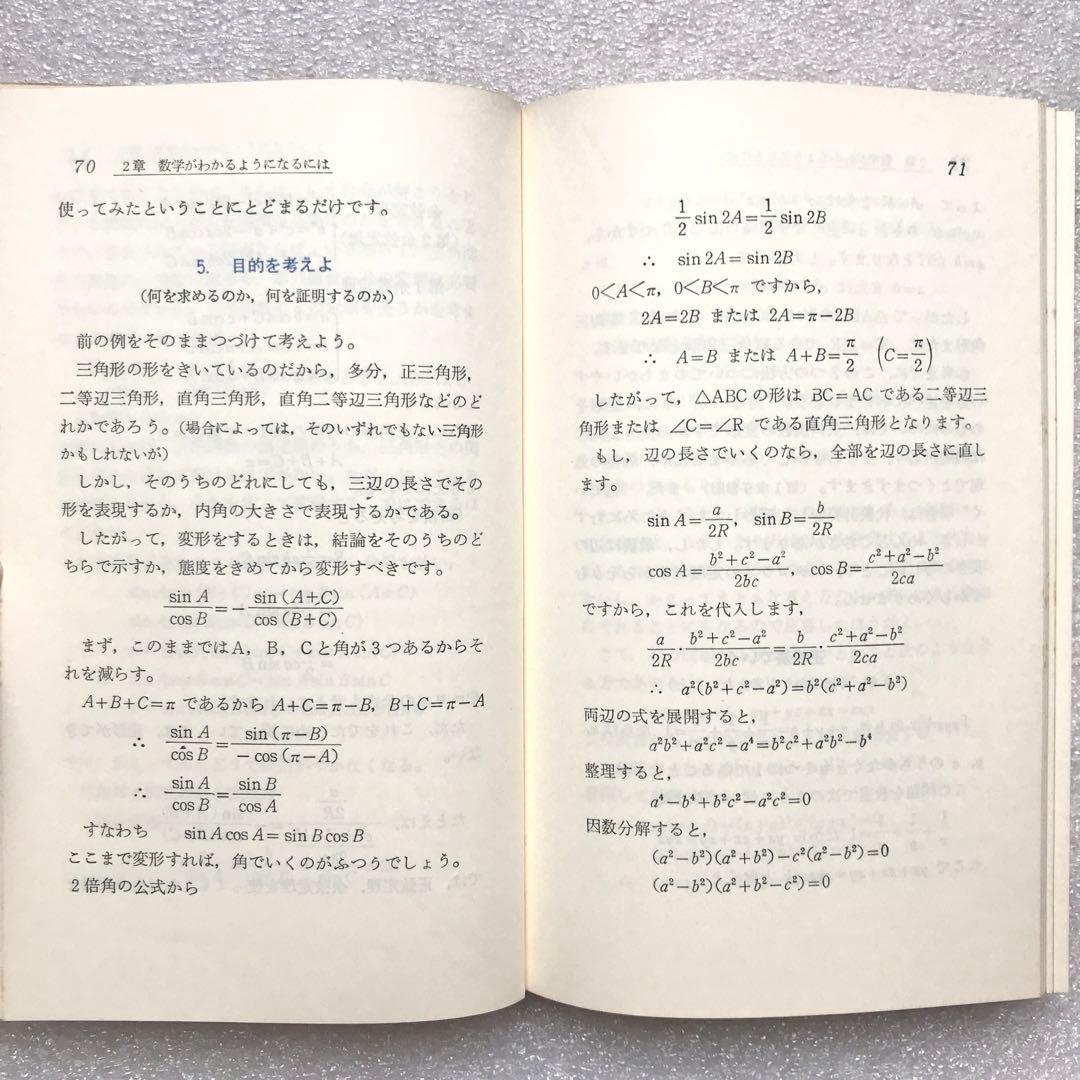 70 2章 数学がわかるようになるには
使ってみたということにとどまるだけです。
5. 目的を考えよ
(何を求めるのか，何を証明するのか)
前の例をそのままつづけて考えよう。
三角形の形をきいているのだから，多分，正三角形，
二等辺三角形，直角三角形，直角二等辺三角形などのど
れかであろう。(場合によっては，そのいずれでもない三角形
かもしれないが)
しかし，そのうちのどれにしても，三辺の長さでその
形を表現するか，内角の大きさで表現するかである。
したがって，変形をするときは，結論をそのうちのど
ちらで示すか，態度をきめてから変形すべきです。
sin A/cos B=-sin(A+C)/cos(B+C)
まず，このままではA，B，Cと角が3つあるからそ
れを減らす。
A+B+C=π であるから A+C=π-B, B+C=π-A
∴ sin A/cos B=sin(π-B)/-cos(π-A)
∴ sin A/cos B=sin B/cos A
すなわち sin A cos A=sin B cos B
ここまで変形すれば，角でいくのがふつうでしょう。
2倍角の公式から
71
1/2 sin 2A=1/2 sin 2B
∴ sin 2A=sin 2B
0<A<π, 0<B<π ですから，
2A=2B または 2A=π-2B
∴ A=B または A+B=π/2 (C=π/2)
したがって，△ABCの形は BC=AC である二等辺三
角形または ∠C=∠R である直角三角形となります。
もし，辺の長さでいくのなら，全部を辺の長さに直し
ます。
sin A=a/2R, sin B=b/2R
cos A=b²+c²-a²/2bc, cos B=c²+a²-b²/2ca
ですから，これを代入します，
a/2R・b²+c²-a²/2bc=b/2R・c²+a²-b²/2ca
∴ a²(b²+c²-a²)=b²(c²+a²-b²)
両辺の式を展開すると，
a²b²+a²c²-a⁴=b²c²+a²b²-b⁴
整理すると，
a⁴-b⁴+b²c²-a²c²=0
因数分解すると，
(a²-b²)(a²+b²)-c²(a²-b²)=0
(a²-b²)(a²+b²-c²)=0